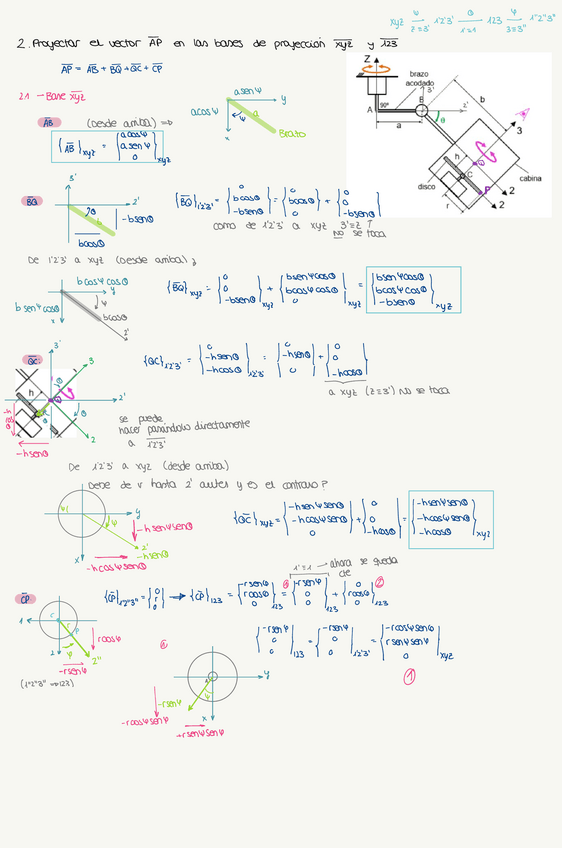 xyz ψ z≡3' 1'2'3' θ 1'≡1 123 φ 3≡3" 1"2"3"
2. Proyectar el vector AP en las bases de proyección xyz y 123
AP = AB + BQ + QC + CP
2.1 → Base xyz
AB (Desde arriba) ⇒
{AB}xyz = {a cosψ a senψ 0}xyz
a senψ
y
a cosψ
ψ
a
x
Brazo
Z
brazo acodado
3'
A
90º
B
2'
θ
b
a
3
h
Q
C
P
disco
cabina
r
2
2
BQ
3'
2'
θ
b
-b senθ
b cosθ
{BQ}1'2'3' = {0 b cosθ -b senθ} = {0 b cosθ 0} + {0 0 -b senθ}
como de 1'2'3' a xyz 3'≡z ↑
NO se toca
De 1'2'3' a xyz (Desde arriba)
b cosψ cosθ
y
b senψ cosθ
ψ
b cosθ
x
2'
{BQ}xyz = {0 0 -b senθ}xyz + {b senψ cosθ b cosψ cosθ 0}xyz = {b senψ cosθ b cosψ cosθ -b senθ}xyz
QC
3'
3
θ
h
Q
2'
C
θ
2
-h senθ
{QC}1'2'3' = {0 -h senθ -h cosθ}1'2'3' = {0 -h senθ 0} + {0 0 -h cosθ}
a xyz (z≡3') NO se toca
se puede
hacer pasándolo directamente
a 1'2'3'
De 1'2'3' a xyz (desde arriba)
Debe de ir hasta 2' antes y es el contrario?
y
ψ
-h senψ senθ
2'
-h senθ
x
-h cosψ senθ
{QC}xyz = {-h senψ senθ -h cosψ senθ 0} + {0 0 -h cosθ} = {-h senψ senθ -h cosψ senθ -h cosθ}xyz
1'≡1 → ahora se queda
CP
{CP}1"2"3" = {0 r 0} → {CP}123 = {-r senφ r cosφ 0}123 = {-r senφ 0 0}123 + {0 r cosφ 0}123
①
②
1
C
P
r cosφ
2
φ
2"
-r senφ
(1"2"3" ⇒ 123)
{-r senφ 0 0}123 = {-r senφ 0 0}1'2'3' = {-r cosψ senφ r senψ senφ 0}xyz
①
y
-r senφ
ψ
x
-r cosψ senφ
+r senψ senφ